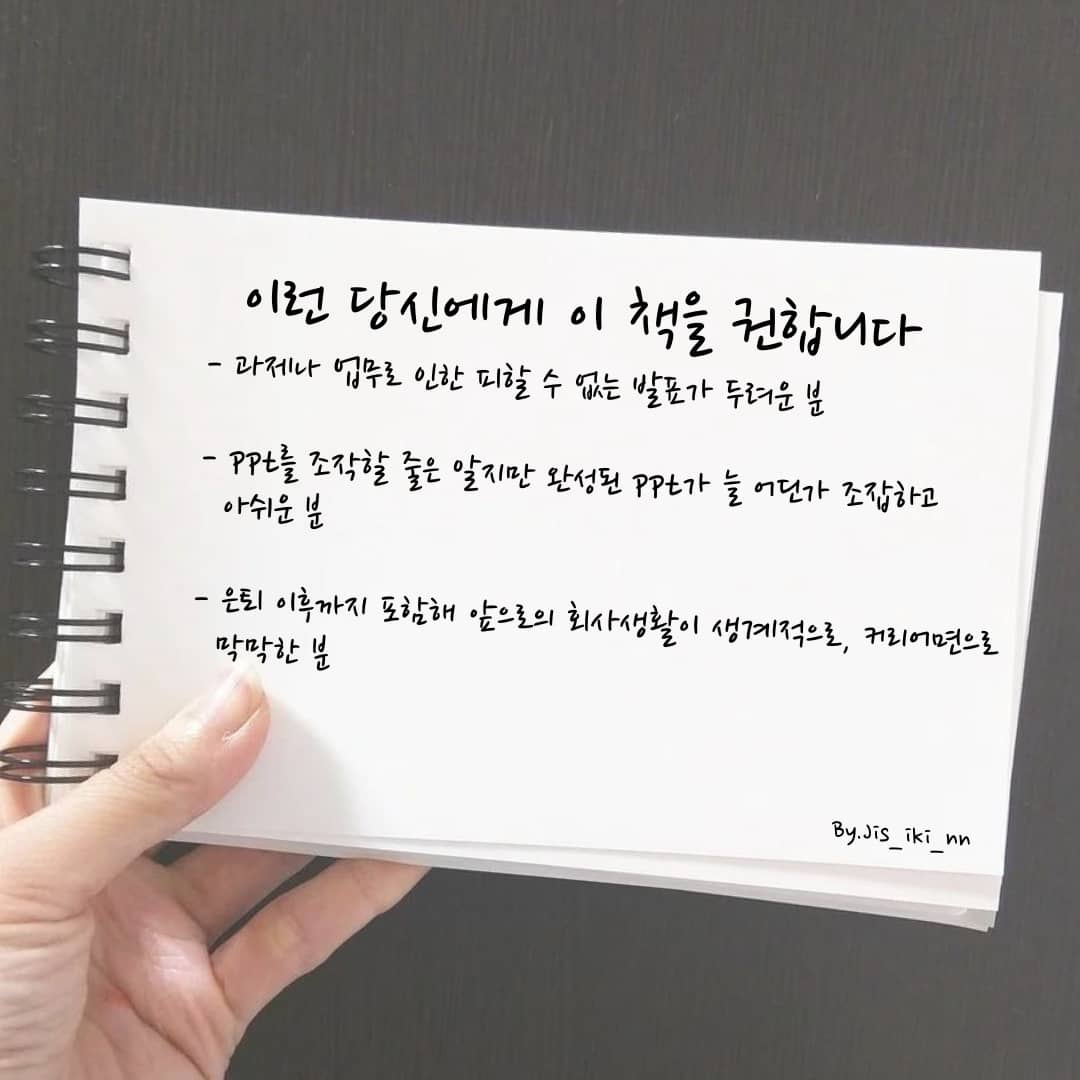 이런 당신에게 이 책을 권합니다
- 과제나 업무로 인한 피할 수 없는 발표가 두려운 분
- PPt를 조작할 줄은 알지만 완성된 PPt가 늘 어딘가 조잡하고
아쉬운 분
- 은퇴 이후까지 포함해 앞으로의 회사생활이 생계적으로, 커리어면으로
막막한 분
By.Jis_iki_nn